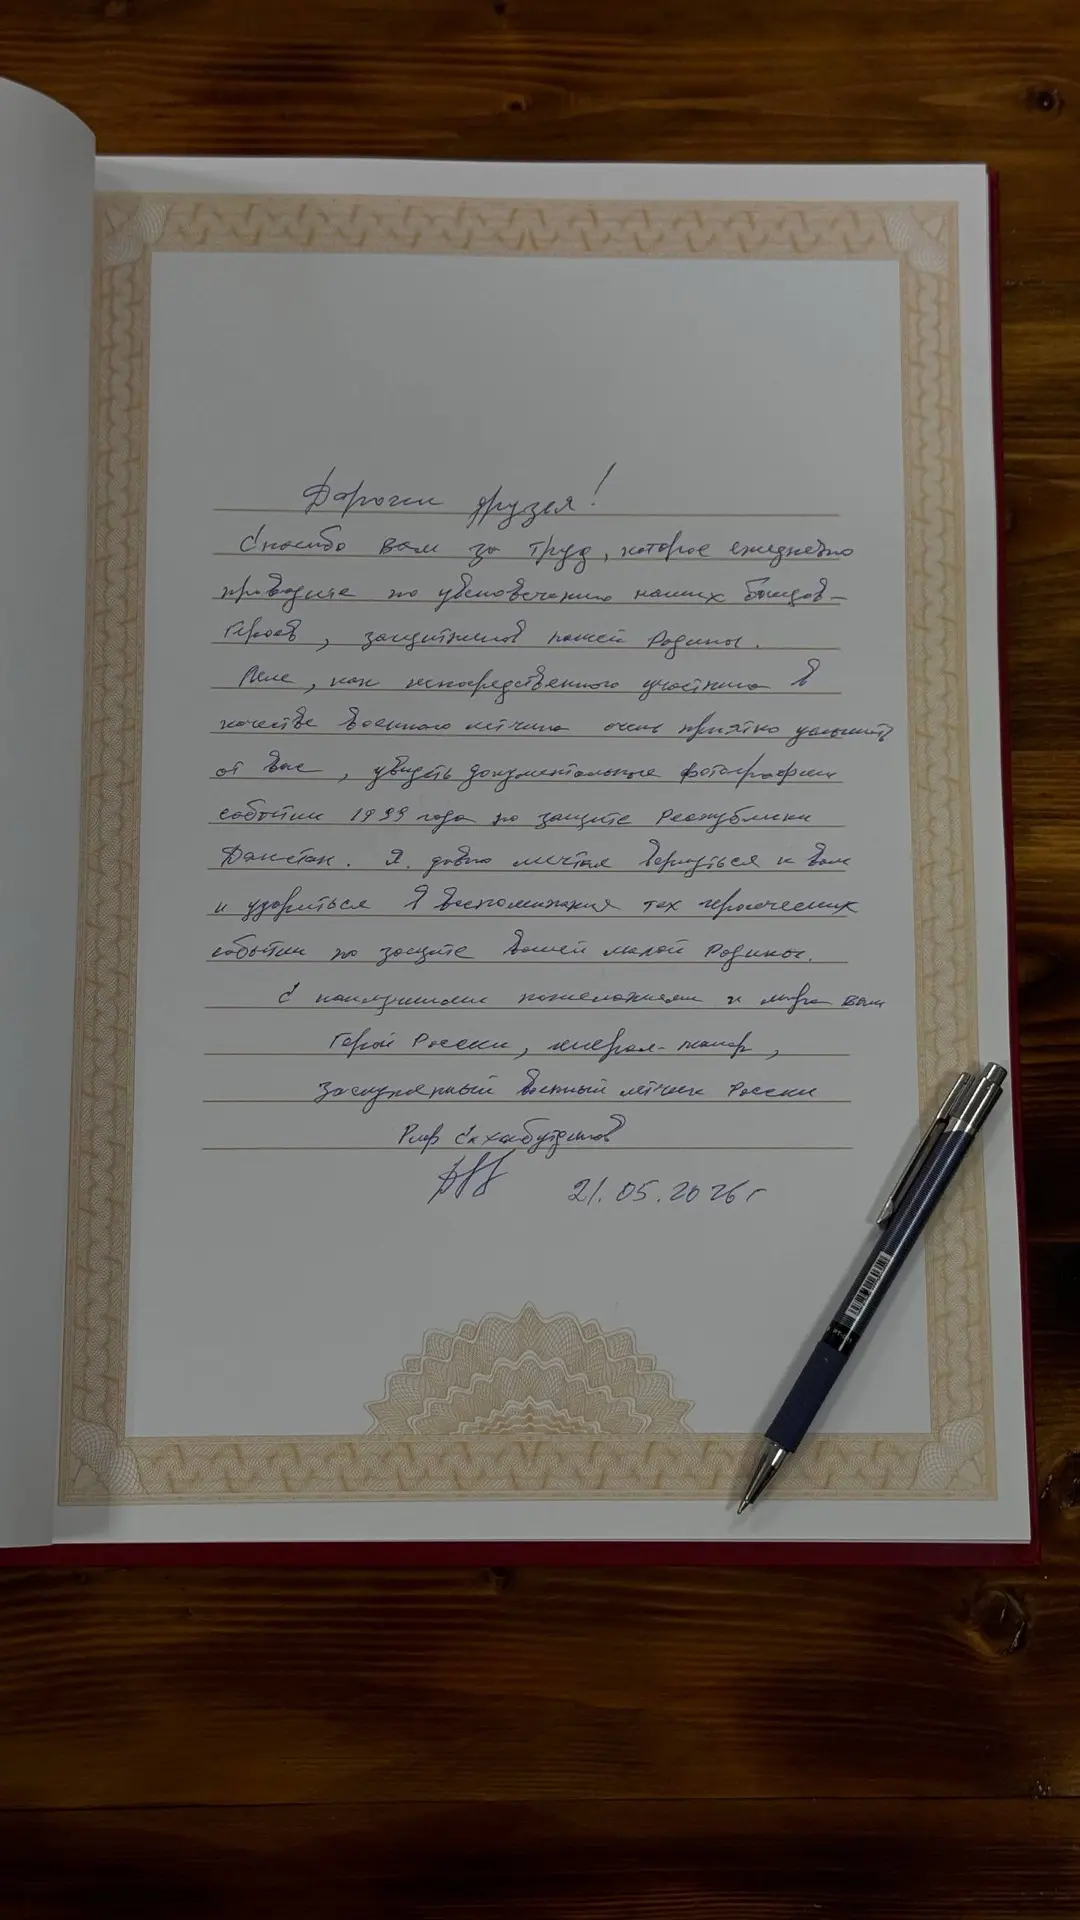 Дорогие друзья!
Спасибо Вам за труд, которое ежедневно
проводите по увековечению наших бойцов-
Героев, защитников нашей Родины.
Мне, как непосредственного участника в
качестве военного летчика очень приятно услышать
от вас, увидеть документальные фотографии
событий 1999 года по защите Республики
Дагестан. Я давно мечтал вернуться к вам
и удариться в воспоминания тех героических
событий по защите вашей малой Родины.
С наилучшими пожеланиями и мира вам
Герой России, генерал-майор,
Заслуженный военный летчик России
Раиф Сахабутдинов
21.05.2026 г